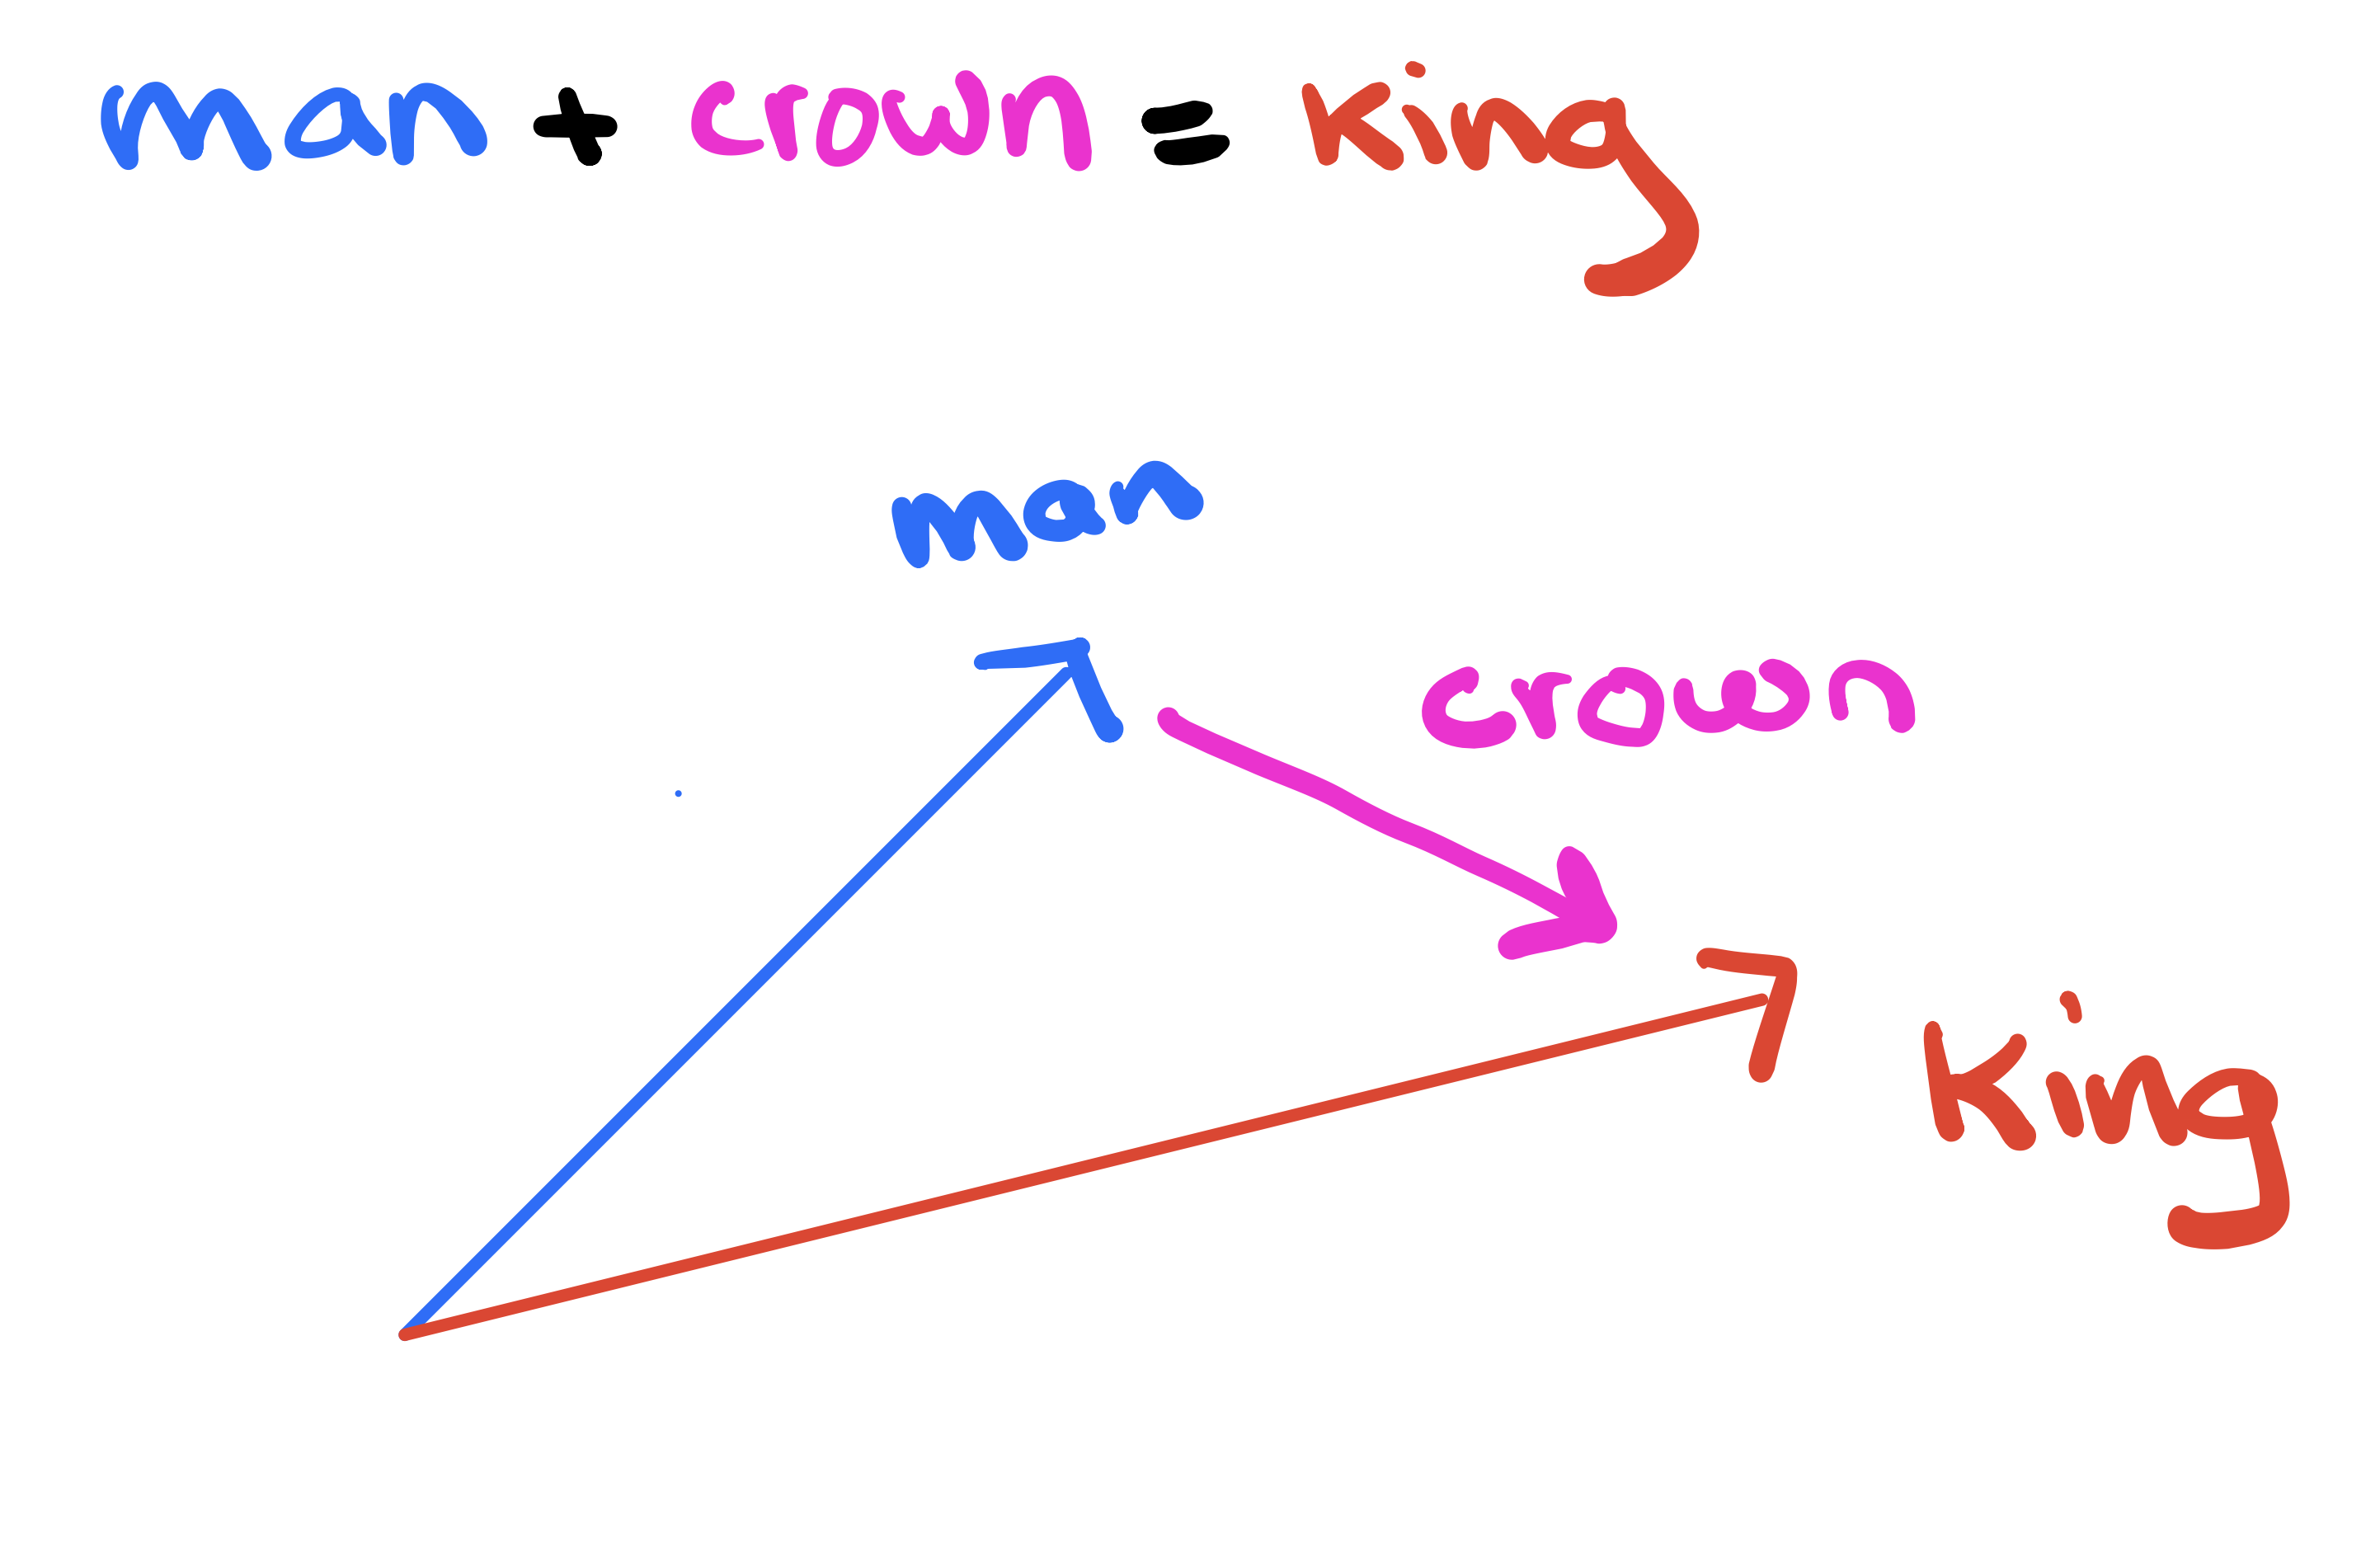 man + crown = king
man
crown
king